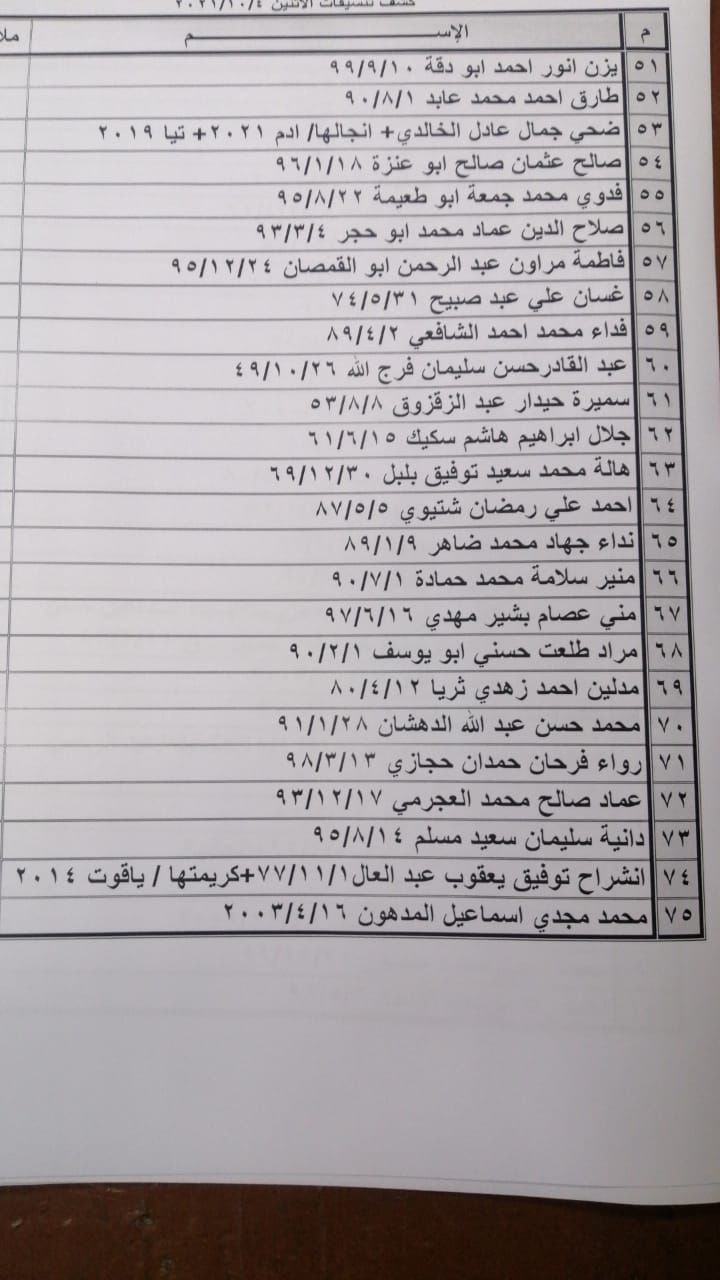 كشف تنسيقات الاثنين ٢٠٢١/١٠/٤
م الإســــــــم
٥١ يزن انور احمد ابو دقة ٩٩/٩/١٠
٥٢ طارق احمد محمد عابد ٩٠/٨/١
٥٣ ضحي جمال عادل الخالدي+ انجالها/ ادم ٢٠٢١+ تيا ٢٠١٩
٥٤ صالح عثمان صالح ابو عنزة ٩٦/١/١٨
٥٥ فدوي محمد جمعة ابو طعيمة ٩٥/٨/٢٢
٥٦ صلاح الدين عماد محمد ابو حجر ٩٣/٣/٤
٥٧ فاطمة مراون عبد الرحمن ابو القمصان ٩٥/١٢/٢٤
٥٨ غسان علي عبد صبيح ٧٤/٥/٣١
٥٩ فداء محمد احمد الشافعي ٨٩/٤/٢
٦٠ عبد القادرحسن سليمان فرج الله ٤٩/١٠/٢٦
٦١ سميرة حيدار عبد الزقزوق ٥٣/٨/٨
٦٢ جلال ابراهيم هاشم سكيك ٦١/٦/١٥
٦٣ هالة محمد سعيد توفيق بلبل ٦٩/١٢/٣٠
٦٤ احمد علي رمضان شتيوي ٨٧/٥/٥
٦٥ نداء جهاد محمد ضاهر ٨٩/١/٩
٦٦ منير سلامة محمد حمادة ٩٠/٧/١
٦٧ مني عصام بشير مهدي ٩٧/٦/١٦
٦٨ مراد طلعت حسني ابو يوسف ٩٠/٢/١
٦٩ مدلين احمد زهدي ثريا ٨٠/٤/١٢
٧٠ محمد حسن عبد الله الدهشان ٩١/١/٢٨
٧١ رواء فرحان حمدان حجازي ٩٨/٣/١٣
٧٢ عماد صالح محمد العجرمي ٩٣/١٢/١٧
٧٣ دانية سليمان سعيد مسلم ٩٥/٨/١٤
٧٤ انشراح توفيق يعقوب عبد العال٧٧/١١/١+كريمتها / ياقوت ٢٠١٤
٧٥ محمد مجدي اسماعيل المدهون ٢٠٠٣/٤/١٦